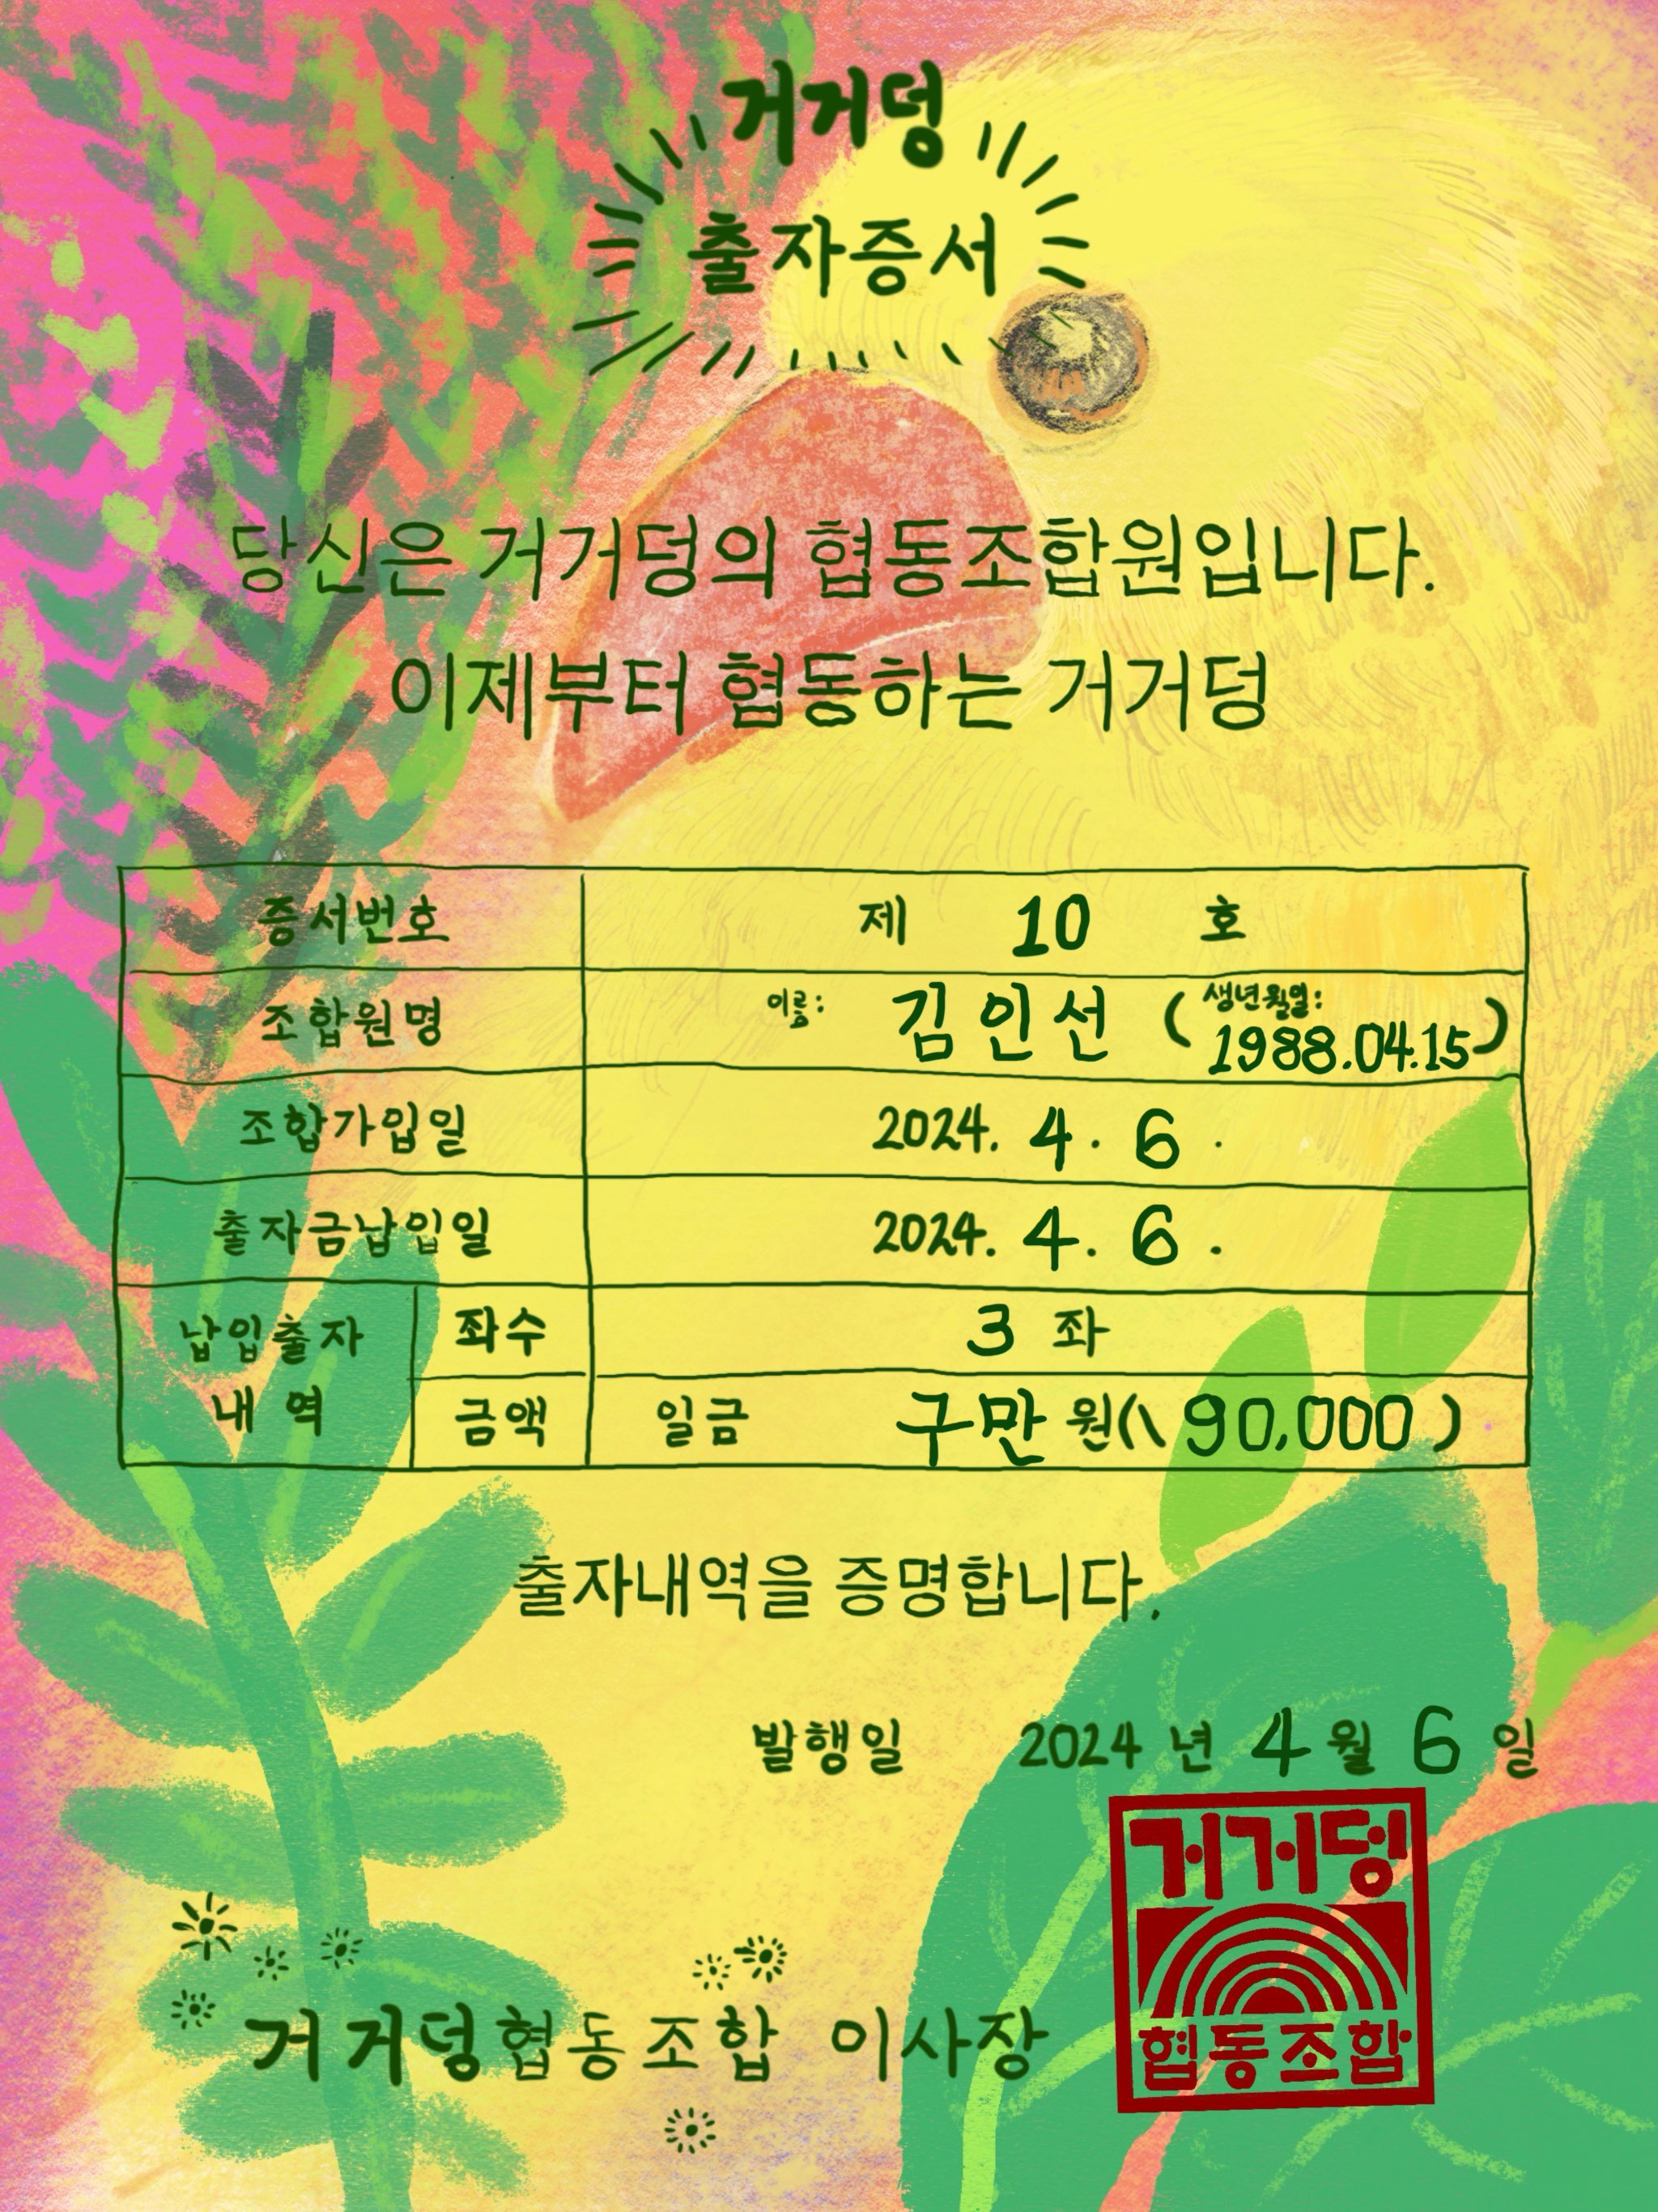 거거덩
출자증서
당신은 거거덩의 협동조합원입니다.
이제부터 협동하는 거거덩
증서번호 제 10 호
조합원명 이름: 김인선 (생년월일: 1988.04.15)
조합가입일 2024. 4. 6.
출자금납입일 2024. 4. 6.
납입출자내역 좌수 3 좌
금액 일금 구만 원(\ 90,000)
출자내역을 증명합니다.
발행일 2024 년 4 월 6 일
거거덩협동조합 이사장
거거덩
협동조합